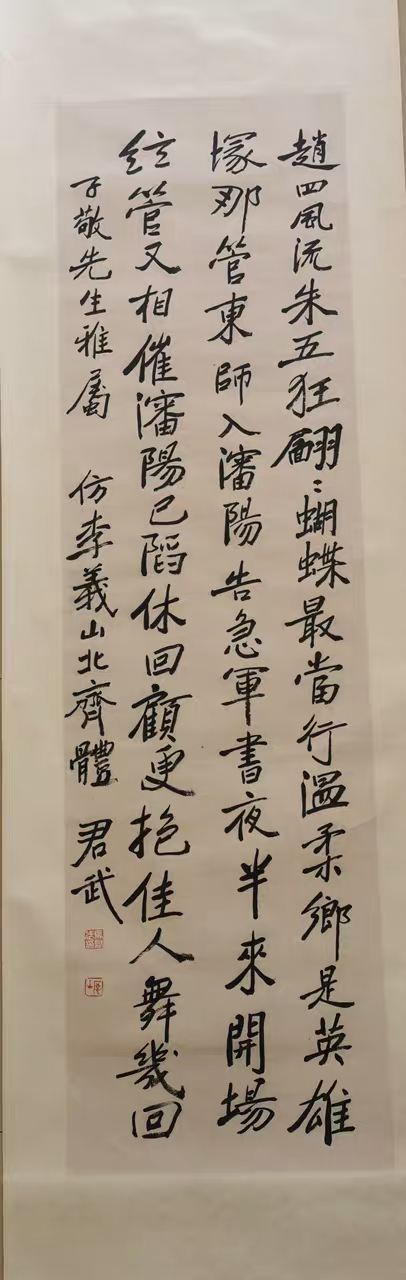 趙四風流朱五狂翩〻蝴蝶最當行溫柔鄉是英雄
塚那管東師入瀋陽告急軍書夜半來開場
絃管又相催瀋陽已陷休回顧更抱佳人舞幾回
子敬先生雅屬 仿李義山北齊體 君武